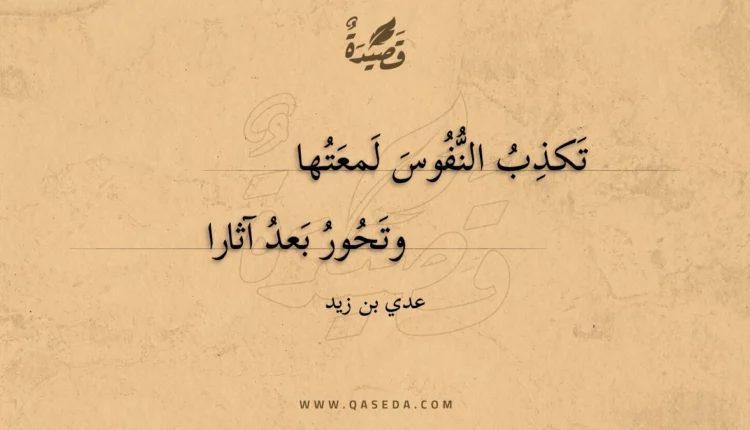 قَصِيْدَةٌ
تَكذِبُ النُّفُوسَ لَمعَتُها
وتَحُورُ بَعدُ آثارا
عدي بن زيد
WWW.QASEDA.COM